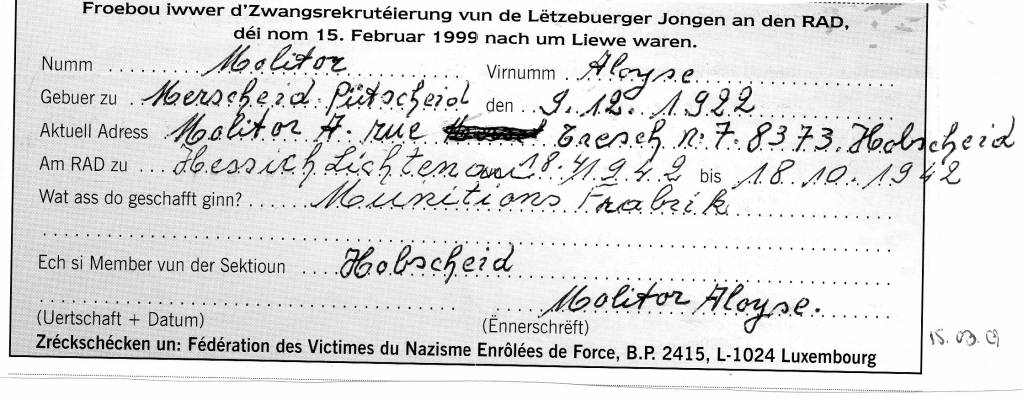 Froebou iwwer d'Zwangsrekrutéierung vun de Lëtzebuerger Jongen an den RAD,
déi nom 15. Februar 1999 nach um Liewe waren.
Numm Molitor Virnumm Aloyse
Gebuer zu Merscheid. Pütscheid den 9.12.1922
Aktuell Adress Molitor A. rue Tresch n: 7. 8373. Hobscheid
Am RAD zu Hessich Lichtenau 18.4.1942 bis 18.10.1942
Wat ass do geschafft ginn? Munitions Frabrik
Ech si Member vun der Sektioun Hobscheid
Molitor Aloyse.
(Uertschaft + Datum) (Ënnerschrëft)
Zréckschécken un: Fédération des Victimes du Nazisme Enrôlées de Force, B.P. 2415, L-1024 Luxembourg
15.03.